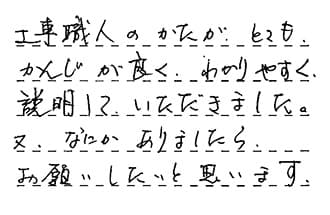 工事職人のかたが、とても、
かんじが良く、わかりやすく、
説明して、いただきました。
又、なにかありましたら、
お願いしたいと思います。